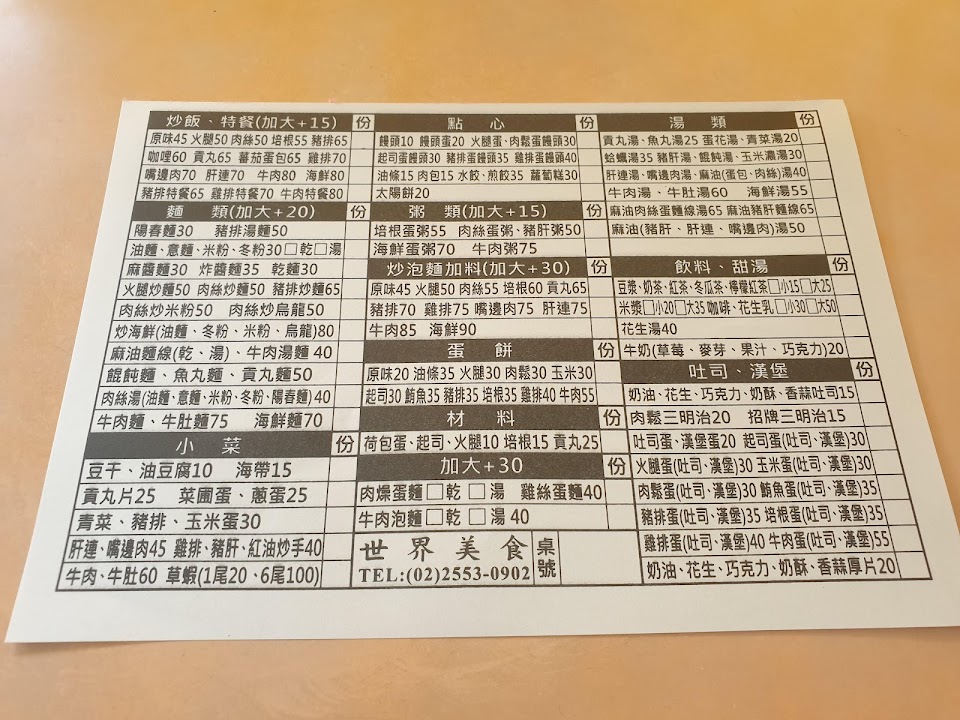 炒飯、特餐(加大+15) 份
原味45 火腿50 肉絲50 培根55 豬排65
咖哩60 貢丸65 蕃茄蛋包65 雞排70
嘴邊肉70 肝連70 牛肉80 海鮮80
豬排特餐65 雞排特餐70 牛肉特餐80
麵 類(加大+20) 份
陽春麵30 豬排湯麵50
油麵、意麵、米粉、冬粉30□乾□湯
麻醬麵30 炸醬麵35 乾麵30
火腿炒麵50 肉絲炒麵50 豬排炒麵65
肉絲炒米粉50 肉絲炒烏龍50
炒海鮮(油麵、冬粉、米粉、烏龍)80
麻油麵線(乾、湯)、牛肉湯麵40
餛飩麵、魚丸麵、貢丸麵50
肉絲湯(油麵、意麵、米粉、冬粉、陽春麵)40
牛肉麵、牛肚麵75 海鮮麵70
小 菜 份
豆干、油豆腐10 海帶15
貢丸片25 菜圃蛋、蔥蛋25
青菜、豬排、玉米蛋30
肝連、嘴邊肉45 雞排、豬肝、紅油炒手40
牛肉、牛肚60 草蝦(1尾20、6尾100)
點 心 份
饅頭10 饅頭蛋20 火腿蛋、肉鬆蛋饅頭30
起司蛋饅頭30 豬排蛋饅頭35 雞排蛋饅頭40
油條15 肉包15 水餃、煎餃35 蘿蔔糕30
太陽餅20
粥 類(加大+15) 份
培根蛋粥55 肉絲蛋粥、豬肝粥50
海鮮蛋粥70 牛肉粥75
炒泡麵加料(加大+30) 份
原味45 火腿50 肉絲55 培根60 貢丸65
豬排70 雞排75 嘴邊肉75 肝連75
牛肉85 海鮮90
蛋 餅 份
原味20 油條35 火腿30 肉鬆30 玉米30
起司30 鮪魚35 豬排35 培根35 雞排40 牛肉55
材 料 份
荷包蛋、起司、火腿10 培根15 貢丸25
加大+30 份
肉燥蛋麵□乾□湯 雞絲蛋麵40
牛肉泡麵□乾□湯 40
世界美食
TEL:(02)2553-0902
桌號
湯 類 份
貢丸湯、魚丸湯25 蛋花湯、青菜湯20
蛤蠣湯35 豬肝湯、餛飩湯、玉米濃湯30
肝連湯、嘴邊肉湯、麻油(蛋包、肉絲)湯40
牛肉湯、牛肚湯60 海鮮湯55
麻油肉絲蛋麵線湯65 麻油豬肝麵線65
麻油(豬肝、肝連、嘴邊肉)湯50
飲料、甜湯 份
豆漿、奶茶、紅茶、冬瓜茶、檸檬紅茶□小15□大25
米漿□小20□大35 咖啡、花生乳□小30□大50
花生湯40
牛奶(草莓、麥芽、果汁、巧克力)20
吐司、漢堡 份
奶油、花生、巧克力、奶酥、香蒜吐司15
肉鬆三明治20 招牌三明治15
吐司蛋、漢堡蛋20 起司蛋(吐司、漢堡)30
火腿蛋(吐司、漢堡)30 玉米蛋(吐司、漢堡)30
肉鬆蛋(吐司、漢堡)30 鮪魚蛋(吐司、漢堡)35
豬排蛋(吐司、漢堡)35 培根蛋(吐司、漢堡)35
雞排蛋(吐司、漢堡)40 牛肉蛋(吐司、漢堡)55
奶油、花生、巧克力、奶酥、香蒜厚片20